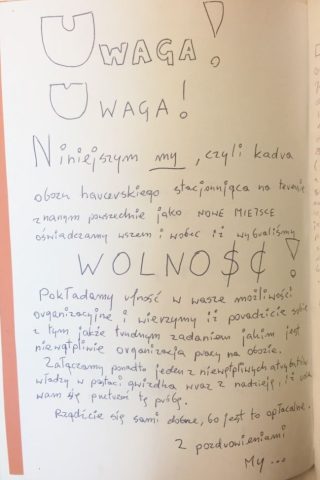 UWAGA!
UWAGA!
Niniejszym my, czyli kadra
obozu harcerskiego stacjonująca na terenie
znanym powszechnie jako NOWE MIEJSCE
oświadczamy wszem i wobec iż wybraliśmy
WOLNO$¢!
Pokładamy ufność w wasze możliwości
organizacyjne i wierzymy iż poradzicie sobie
z tym jakże trudnym zadaniem jakim jest
niewątpliwie organizacja pracy na obozie.
Załączamy ponadto jeden z niewątpliwych atrybutów
władzy w postaci gwizdka wraz z nadzieją, iż
wam się przetrwać tę próbę.
Rządźcie się sami dobrze, bo jest to opłacalne.
Z pozdrowieniami
My...